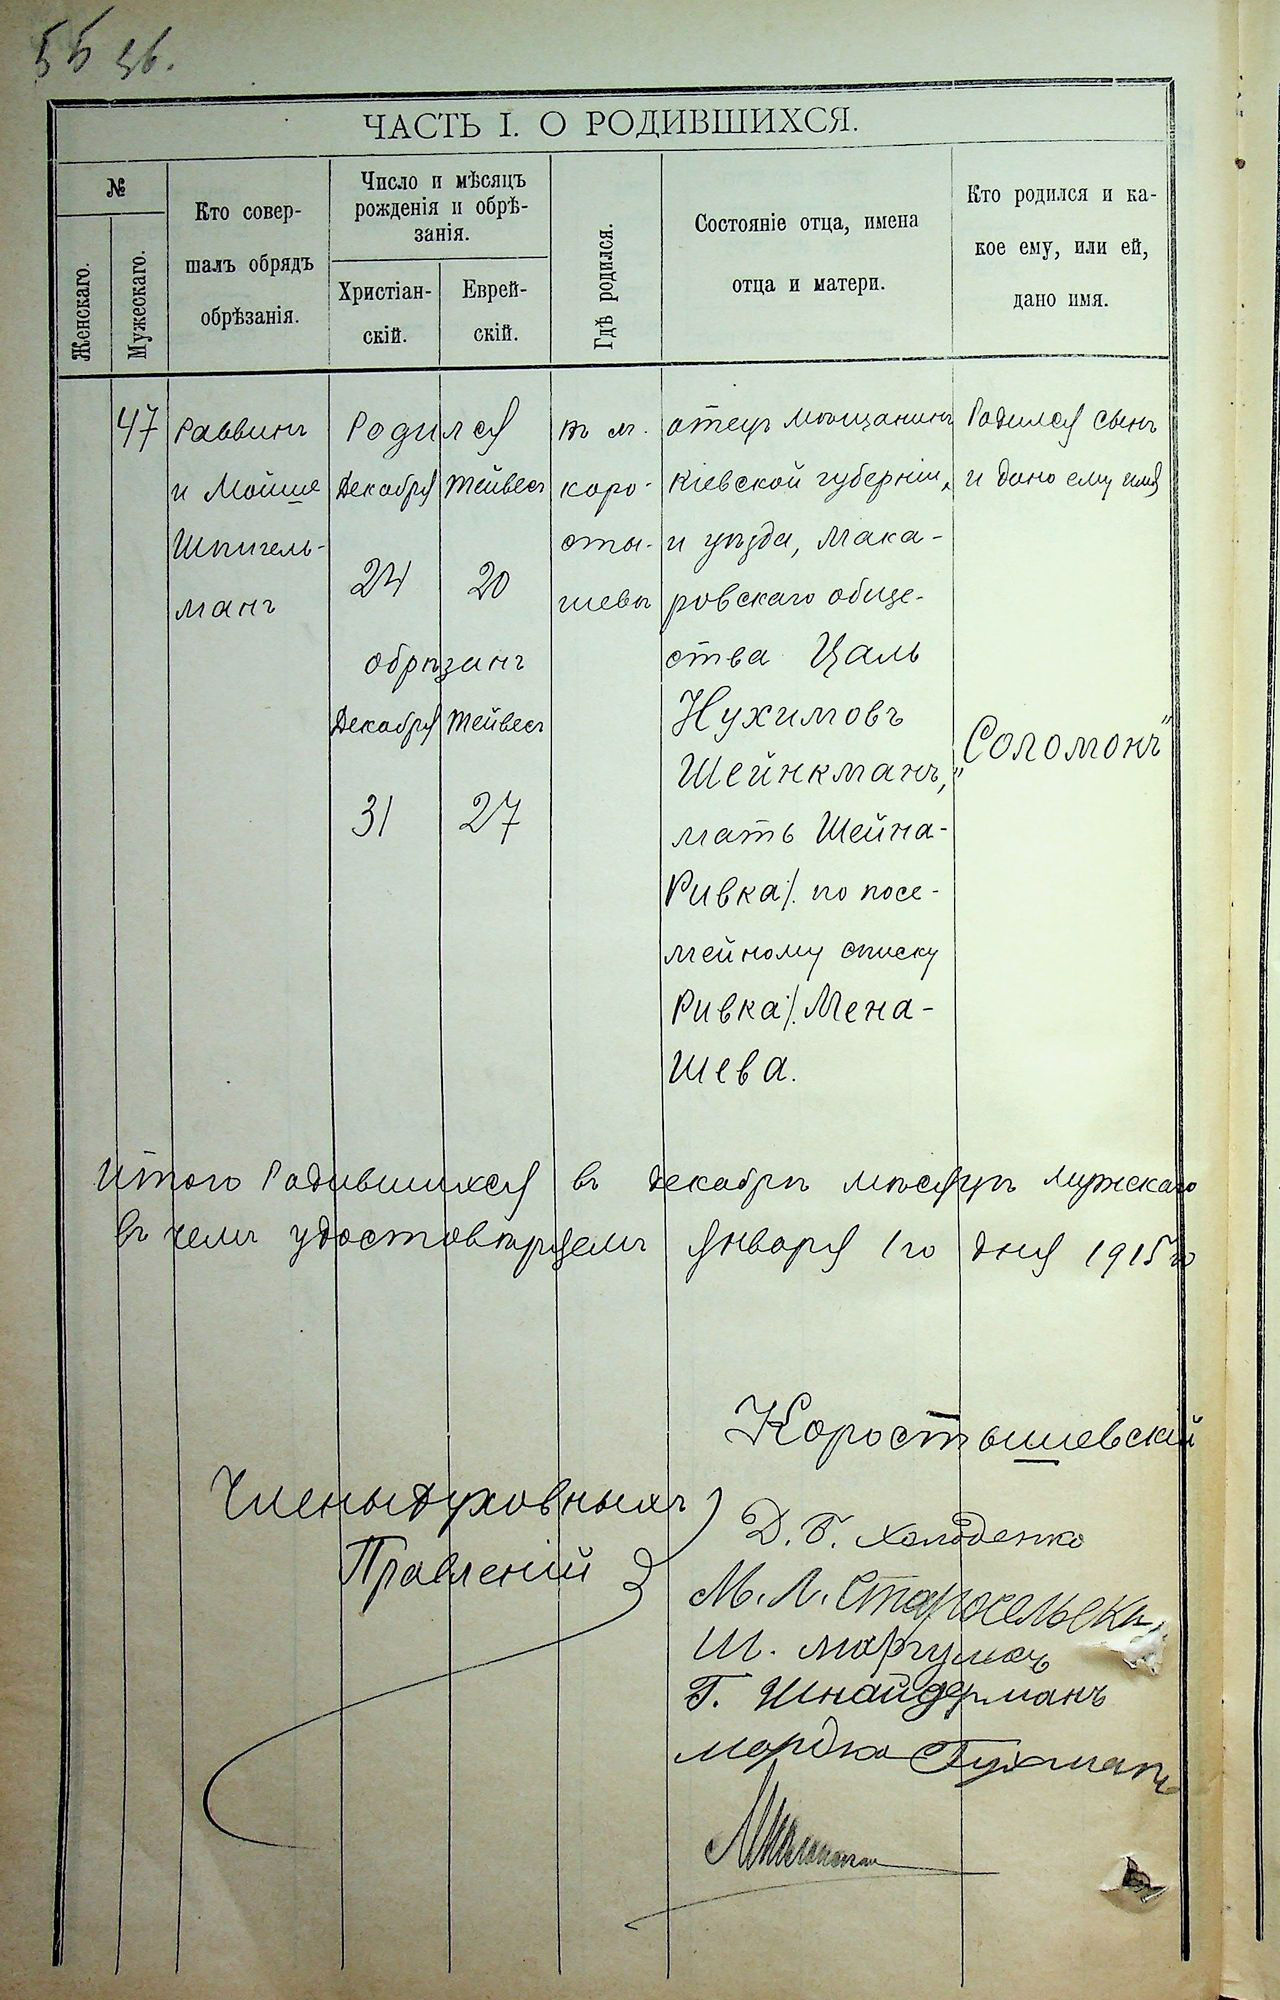 55 56.
ЧАСТЬ I. О РОДИВШИХСЯ.
№
Женскаго.
Мужескаго.
Кто совер-
шалъ обрядъ
обрѣзанія.
Число и мѣсяцъ
рожденія и обрѣ-
занія.
Христіан-
скій.
Еврей-
скій.
Гдѣ родился.
Состояніе отца, имена
отца и матери.
Кто родился и ка-
кое ему, или ей,
дано имя.
47
Раввинъ
и Мойше
Шпигель-
манъ
Родился
Декабря Тейвесъ
24 20
обрѣзанъ
Декабря Тейвесъ
31 27
въ м.
коро-
сты-
шевъ
отецъ мѣщанинъ
Кіевской губерніи,
и уѣзда, Мака-
ровскаго обще-
ства Цаль
Нухимовъ
Шейнкманъ,
мать Шейна-
Ривка/. по посе-
мейному списку
Ривка/. Мена-
шева.
Родился сынъ
и дано ему имя
„Соломонъ"
Итого Родившихся въ декабрѣ мѣсяцѣ мужскаго
въ чемъ удостовѣряемъ января 1го дня 1915 го
Коростышевскій
Члены духовныхъ
Правленій
Д. Б. Холоденко
М. Л. Старосельскі
Ш. Моргулисъ
Г. Шнайдерманъ
Мордко Гухманъ